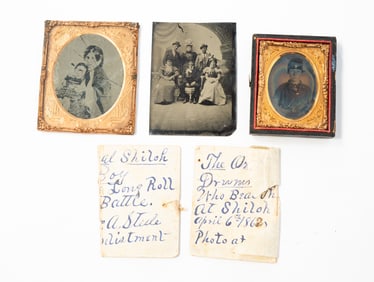 at Shiloh
Boy
Long Roll
Battle.
A. Steele
Enlistment
The Or
Drumer
Who Beat th
At Shiloh
April 6th 1862
Photo at